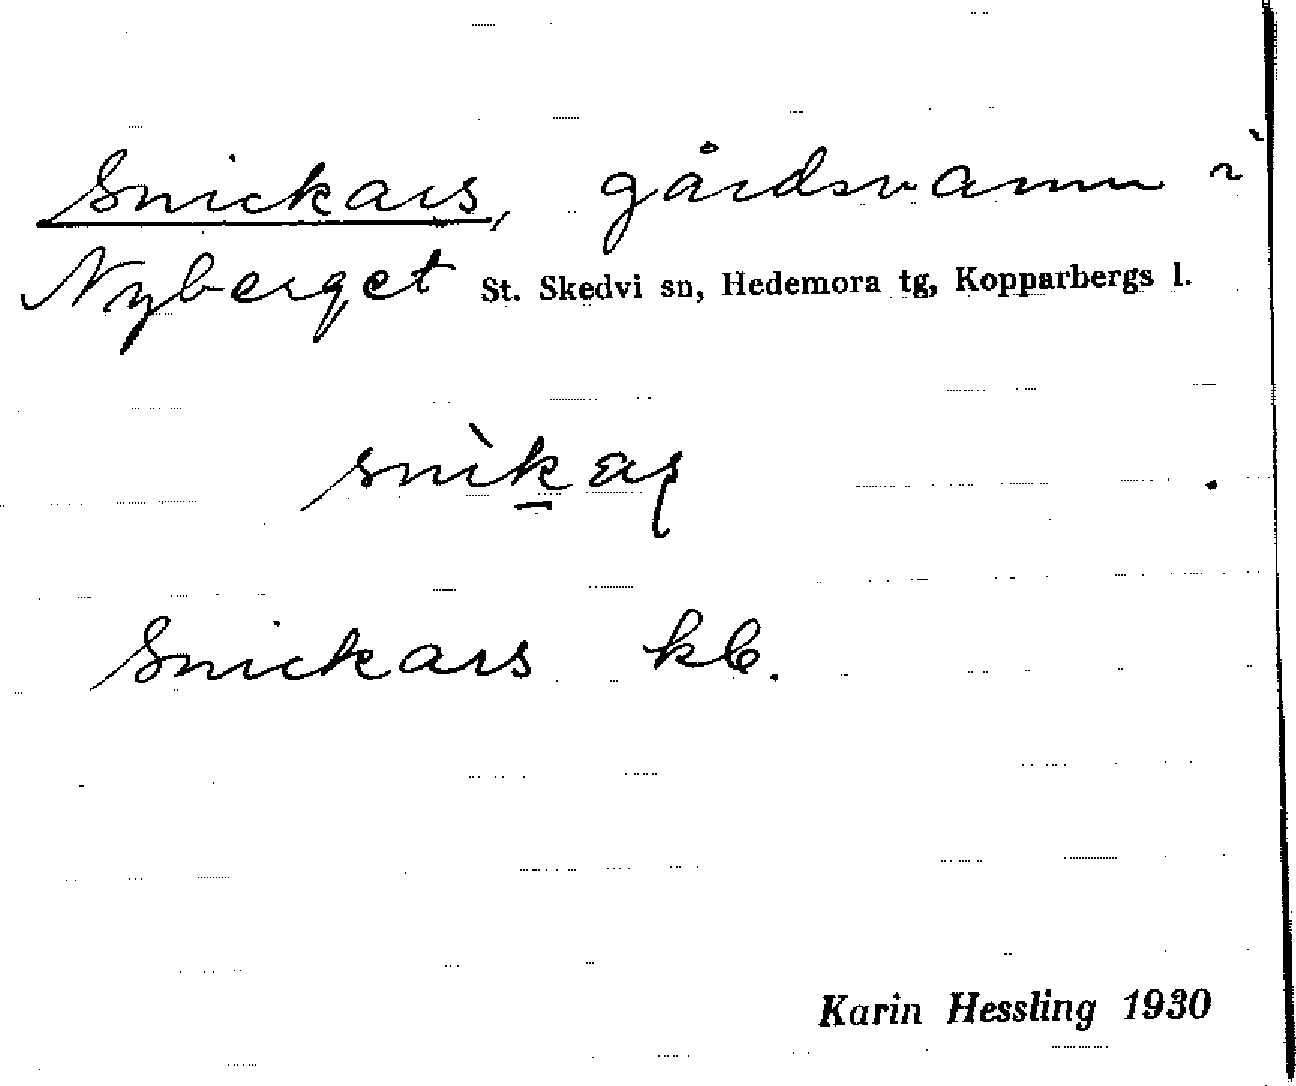 Snickars, gårdsnamn i
Nyberget St. Skedvi sn, Hedemora tg, Kopparbergs l.
snìk̲aʂ
Snickars kb.
Karin Hessling 1930